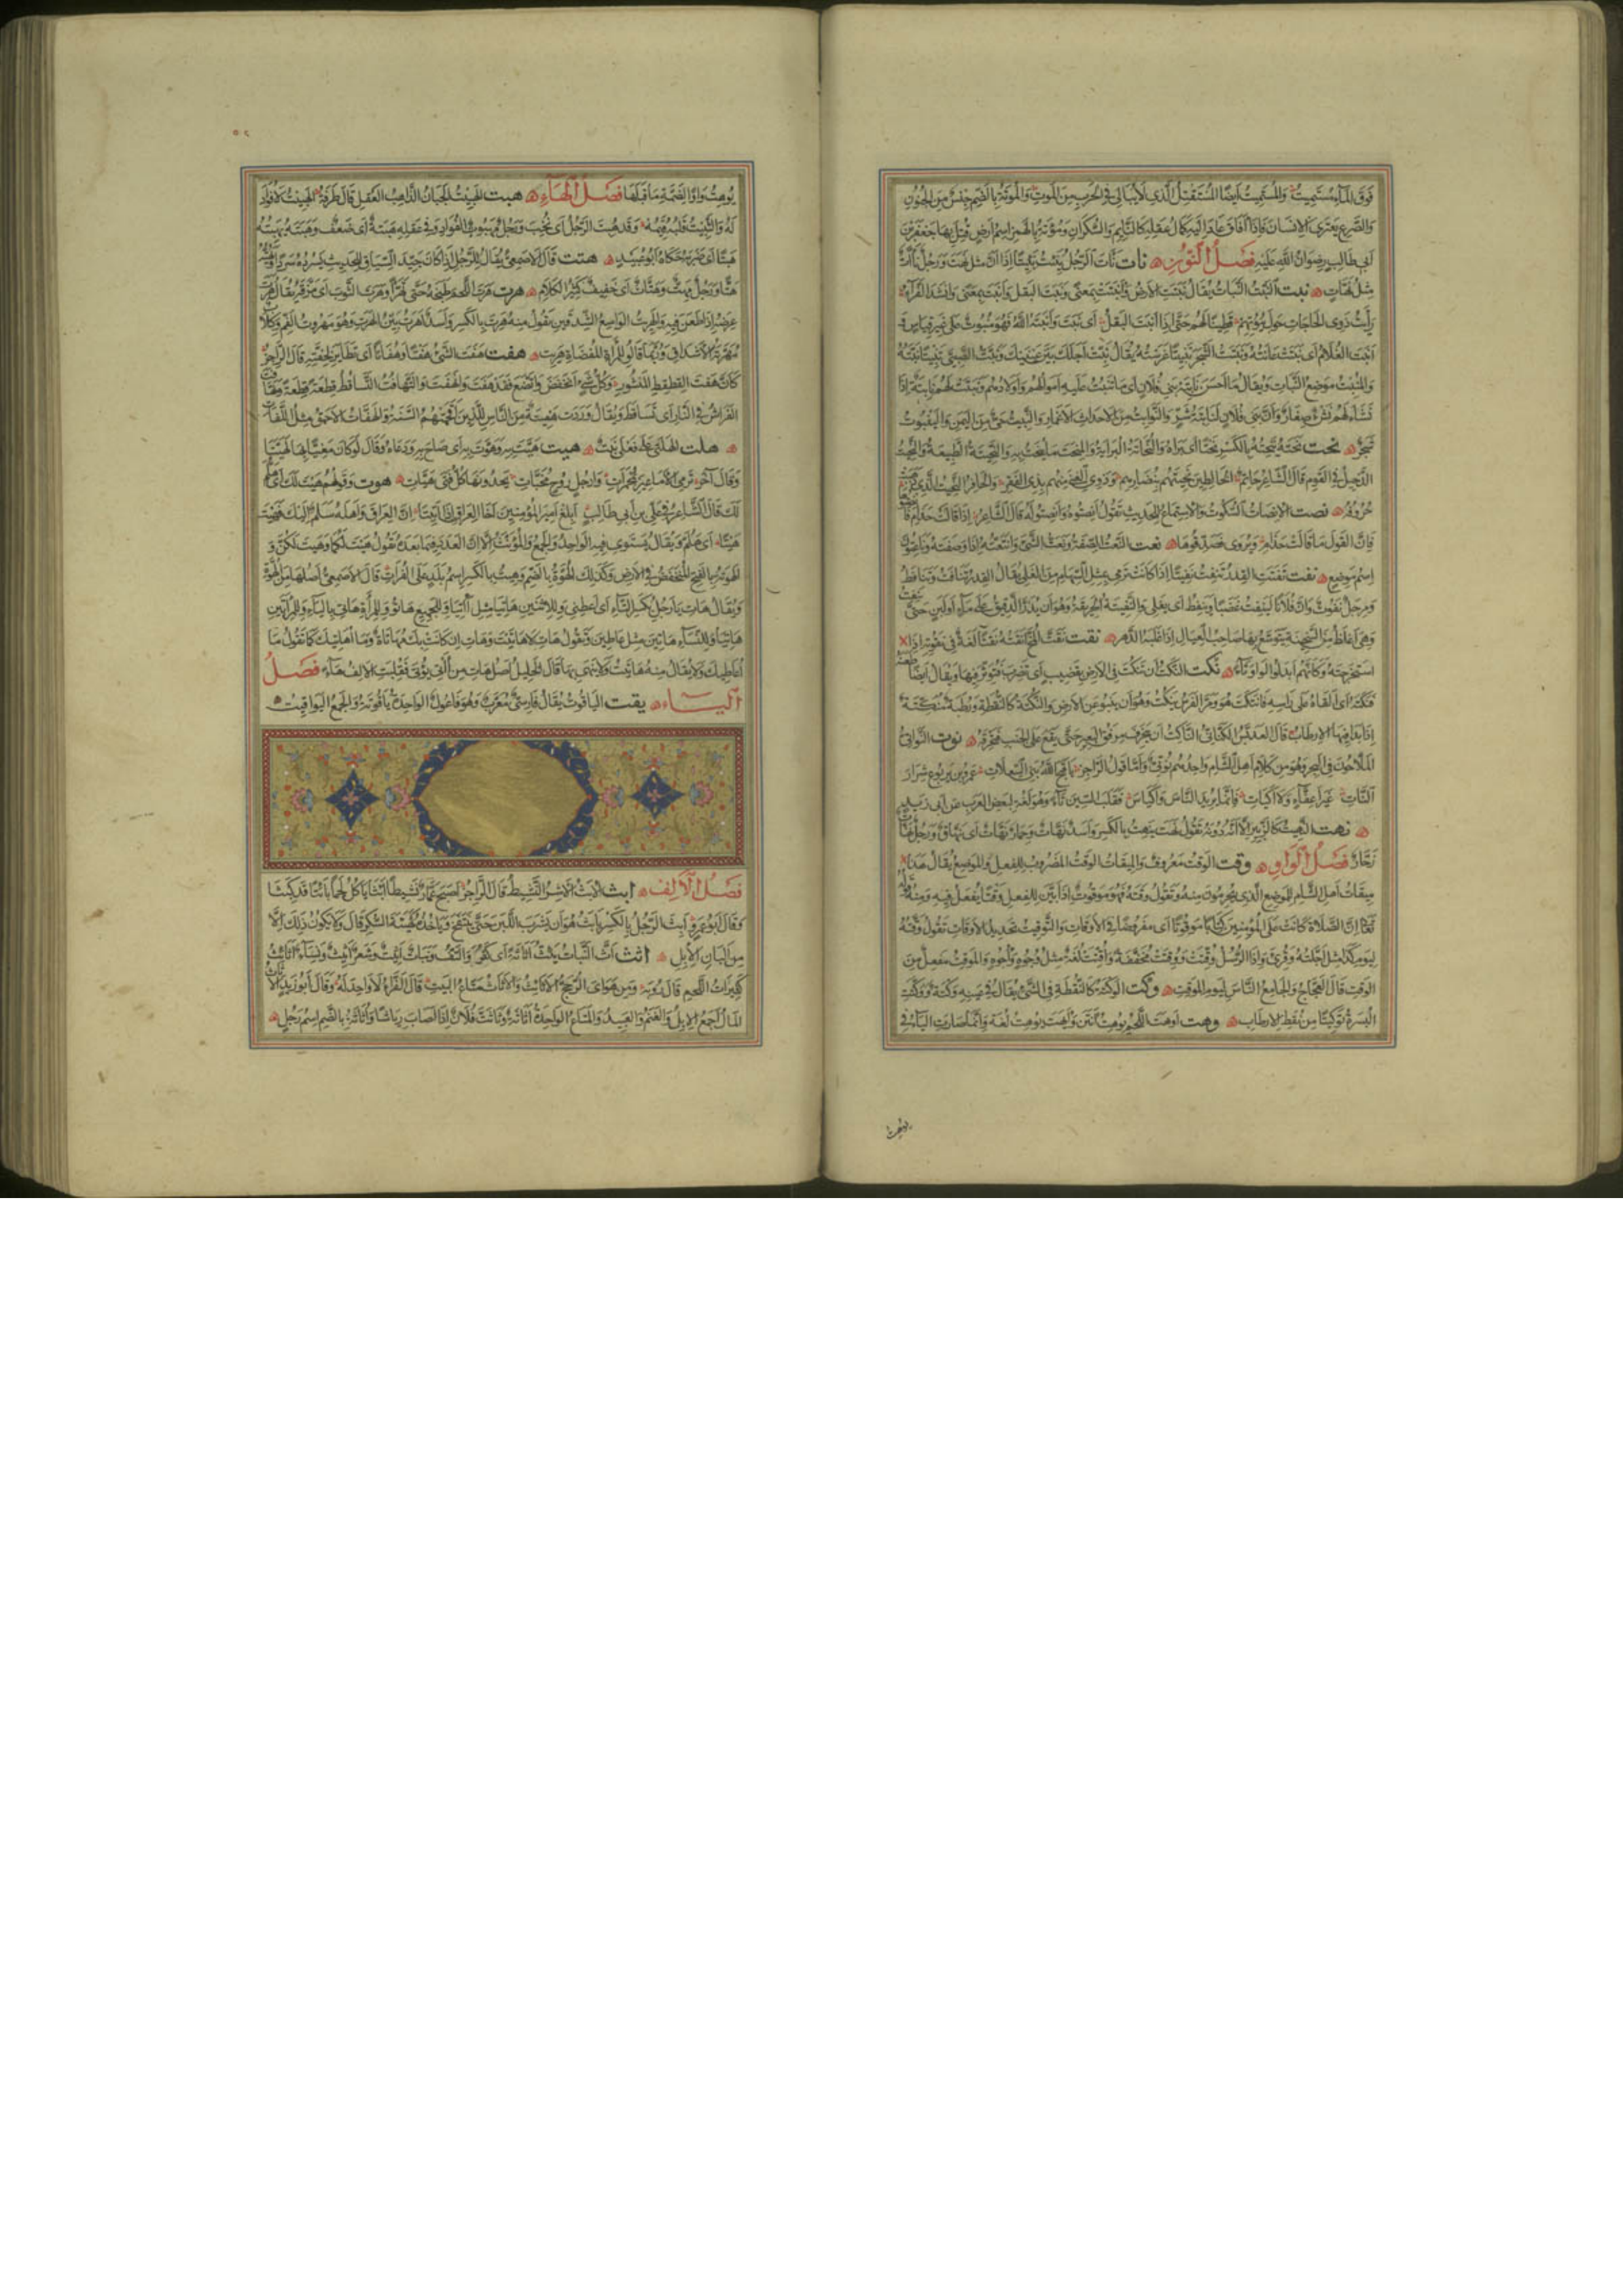 فوق الماء مستميت والمستميت ايضا المستقتل الذي لا يبالي في الحرب من الموت والموتة بالضم جنس من الجنون
والصرع يعتري الانسان فاذا افاق عاد اليه كمال عقله كالنائم والسكران ومؤتة بالهمز اسم ارض قتل بها جعفر بن
ابي طالب رضوان الله عليه فصل النون نات نات الرجل ينئت نئيتا اذا ان مثل نهت ورجل نأات
مثل نهات نبت النبت النبات يقال نبتت الارض وانبتت بمعنى ونبت البقل وانبت بمعنى وانشد الفراء
رايت ذوي الحاجات حول بيوتهم قطينا لهم حتى اذا انبت البقل اي نبت وانبته الله فهو منبوت على غير قياس و
انبت الغلام اي نبتت عانته ونبتت الشجر تنبيتا غرسته يقال نبت اجلك بين عينيك ونبت الصبي تنبيتا ربيته
والمنبت موضع النبات ويقال ما احسن نابتة بني فلان اي ما تنبت عليه اموالهم واولادهم ونبتت لهم نابتة اذا
نشأ لهم نشء صغار وان بني فلان لنابتة شر والنوابت من الاحداث الاغمار والنبيت حي من اليمن والينبوت
شجر نحت نحته ينحته بالكسر نحتا اي براه والنحاتة البراية والمنحت ما ينحت به والنحيتة الطبيعة والنحيت
الدخيل في القوم قال الشاعر الخالطين نحيتهم بنضارهم وذوي الغنى منهم بذي الفقر والحافر النحيت الذي ذهبت
حروفه نصت الانصات السكوت والاستماع للحديث تقول انصتوه وانصتوا له قال الشاعر اذا قالت حذام فانصتوها
فان القول ما قالت حذام ويروى فصدقوها نعت النعت الصفة ونعت الشيء وانتعته اذا وصفته وناعتون
اسم موضع نفت نفتت القدر تنفت نفيتا اذا كانت ترمي بمثل السهام من الغلي يقال القدر تنافت وتنافط
ومرجل نفوت وان فلانا لينفت غضبا وينفط اي يغلي والنفيتة الحريقة وهو ان يذر الدقيق على ماء او لبن حتى ينفت
وهي اغلظ من السخينة يتوسع بها صاحب العيال اذا غلبه الدهر نقت نقت المخ انقته نقتا لغة في نقوته اذا
استخرجته وكانهم ابدلوا الواو تاء نكت النكت ان تنكت في الارض بقضيب اي تضرب فتؤثر فيها ويقال ايضا طعنه
فنكته اي القاه على راسه فانتكت هو ومر الفرس ينكت وهو ان ينبو عن الارض والنكتة كالنقطة ورطبة منكتة
اذا بدا فيها الارطاب قال العدبس الكناني الناكت ان يتحرف مرفق البعير حتى يقع على الجنب فيخرقه نوت النواتي
الملاحون في البحر وهو من كلام اهل الشام واحدهم نوتي واما قول الراجز يا قبح الله بني السعلات عمرو بن يربوع شرار
النات غير اعفاء ولا اكيات فانما يريد الناس واكياس فقلب السين تاء وهو لغة لبعض العرب عن ابي زيد
نهت النهيت كالزئير الا انه دونه تقول نهت ينهت بالكسر واسد نهات وحمار نهات اي نهاق ورجل نهات
زحار فصل الواو وقت الوقت معروف والميقات الوقت المضروب للفعل والموضع يقال هذا
ميقات اهل الشام للموضع الذي يحرمون منه وتقول وقته فهو موقوت اذا بين للفعل وقتا يفعل فيه ومنه قوله
تعالى ان الصلاة كانت على المؤمنين كتابا موقوتا اي مفروضا في الاوقات والتوقيت تحديد الاوقات تقول وقته
ليوم كذا مثل اجلته وقرئ واذا الرسل وقتت ووقتت مخففة واقتت لغة مثل وجوه واجوه والموقت مفعل من
الوقت قال العجاج والجامع الناس ليوم الموقت وكت الوكتة كالنقطة في الشيء يقال في عينه وكتة ووكتت
البسرة توكيتا من نقط الارطاب وهت اوهت اللحم يوهت انتن وايهت يوهت لغة وانما صارت الياء في
يوهت واوا لضمة ما قبلها فصل الهاء هبت الهبيت الجبان الذاهب العقل قال طرفة الهبيت لا فؤاد
له والثبيت قلبه قيمه وقد هبت الرجل اي نخب ورجل مهبوت الفؤاد وفي عقله هبتة اي ضعف وهبته يهبته
هبتا اي ضربه حكاه ابو عبيد هتت قال الاصمعي يقال للرجل اذا كان جيد السياق للحديث هو يسرده سردا ويهته
هتا ورجل مهت وهتات اي خفيف كثير الكلام هرت هرت اللحم طبخه حتى تهرأ وهرت الثوب اي مزقه يقال هرت
عرضه اذا طعن فيه والهرت الواسع الشدقين تقول منه هرت بالكسر واسد اهرت بين الهرت وهو مهروت الفم وكلاب
مهرتة الاشداق وربما قالوا للمرأة المفضاة هريت هفت هفت الشيء هفتا وهفاتا اي تطاير لخفته قال الراجز
كان هفت القطقط المنثور وكل شيء انخفض واتضع فقد هفت وانهفت والتهافت التساقط قطعة قطعة وتهافت
الفراش في النار اي تساقط ويقال وردت هفيتة من الناس للذين اقحمتهم السنة والهفات الاحمق مثل اللفات
هلت الهلتى على فعلى نبت هيت هيت به وهوت به اي صاح به ودعاه وقال لو كان معنيا بها لهيتا
وقال آخر ترمي الاماعيز بمجمرات وارجل روح مجنبات يحدو بها كل فتى هيات هوت وقولهم هيت لك اي هلم
لك قال الشاعر في علي بن ابي طالب ابلغ امير المؤمنين اخا العراق اذا اتيتا ان العراق واهله سلم اليك فهيت
هيتا اي هلم ويقال يستوي فيه الواحد والجمع والمؤنث الا ان العدد فيما بعده تقول هيت لكما وهيت لكن و
الهوتة بالفتح المنخفض في الارض وكذلك الهوتة بالضم وهيت بالكسر اسم بلد على الفرات قال الاصمعي اصلها من الهوة
ويقال هات يا رجل بكسر التاء اي اعطني وللاثنين هاتيا مثل آتيا وللجميع هاتوا وللمرأة هاتي بالياء وللمرأتين
هاتيا وللنساء هاتين مثل عاطين وتقول هات لا هاتيت وهات ان كانت بك مهاتاة وما اهاتيك كما تقول ما
اعاطيك ولا يقال منه هاتيت ولا ينهى بها قال الخليل اصل هات من آتى يؤتي فقلبت الالف هاء فصل
الياء يقت الياقوت يقال فارسي معرب وهو فاعول الواحدة ياقوتة والجمع اليواقيت
فصل الالف ابث الابث الاشر النشيط قال الراجز اصبح عمار نشيطا ابثا ياكل لحما بائتا قد كبثا
وقال ابو عمرو ابث الرجل بالكسر يابث هو ان يشرب اللبن حتى ينتفخ وياخذه كهيئة السكر قال ولا يكون ذلك الا
من البان الابل اثث اث النبات يئث اثاثة اي كثر والتف ونبات اثيث وشعر اثيث ونساء اثائث
كثيرات اللحم قال رؤبة ومن هواي الرجح الاثائث والاثاث متاع البيت قال الفراء لا واحد له وقال ابو زيد الاثاث
المال اجمع الابل والغنم والعبيد والمتاع الواحدة اثاثة وتاثث فلان اذا اصاب رياشا واثاثة بالضم اسم رجل